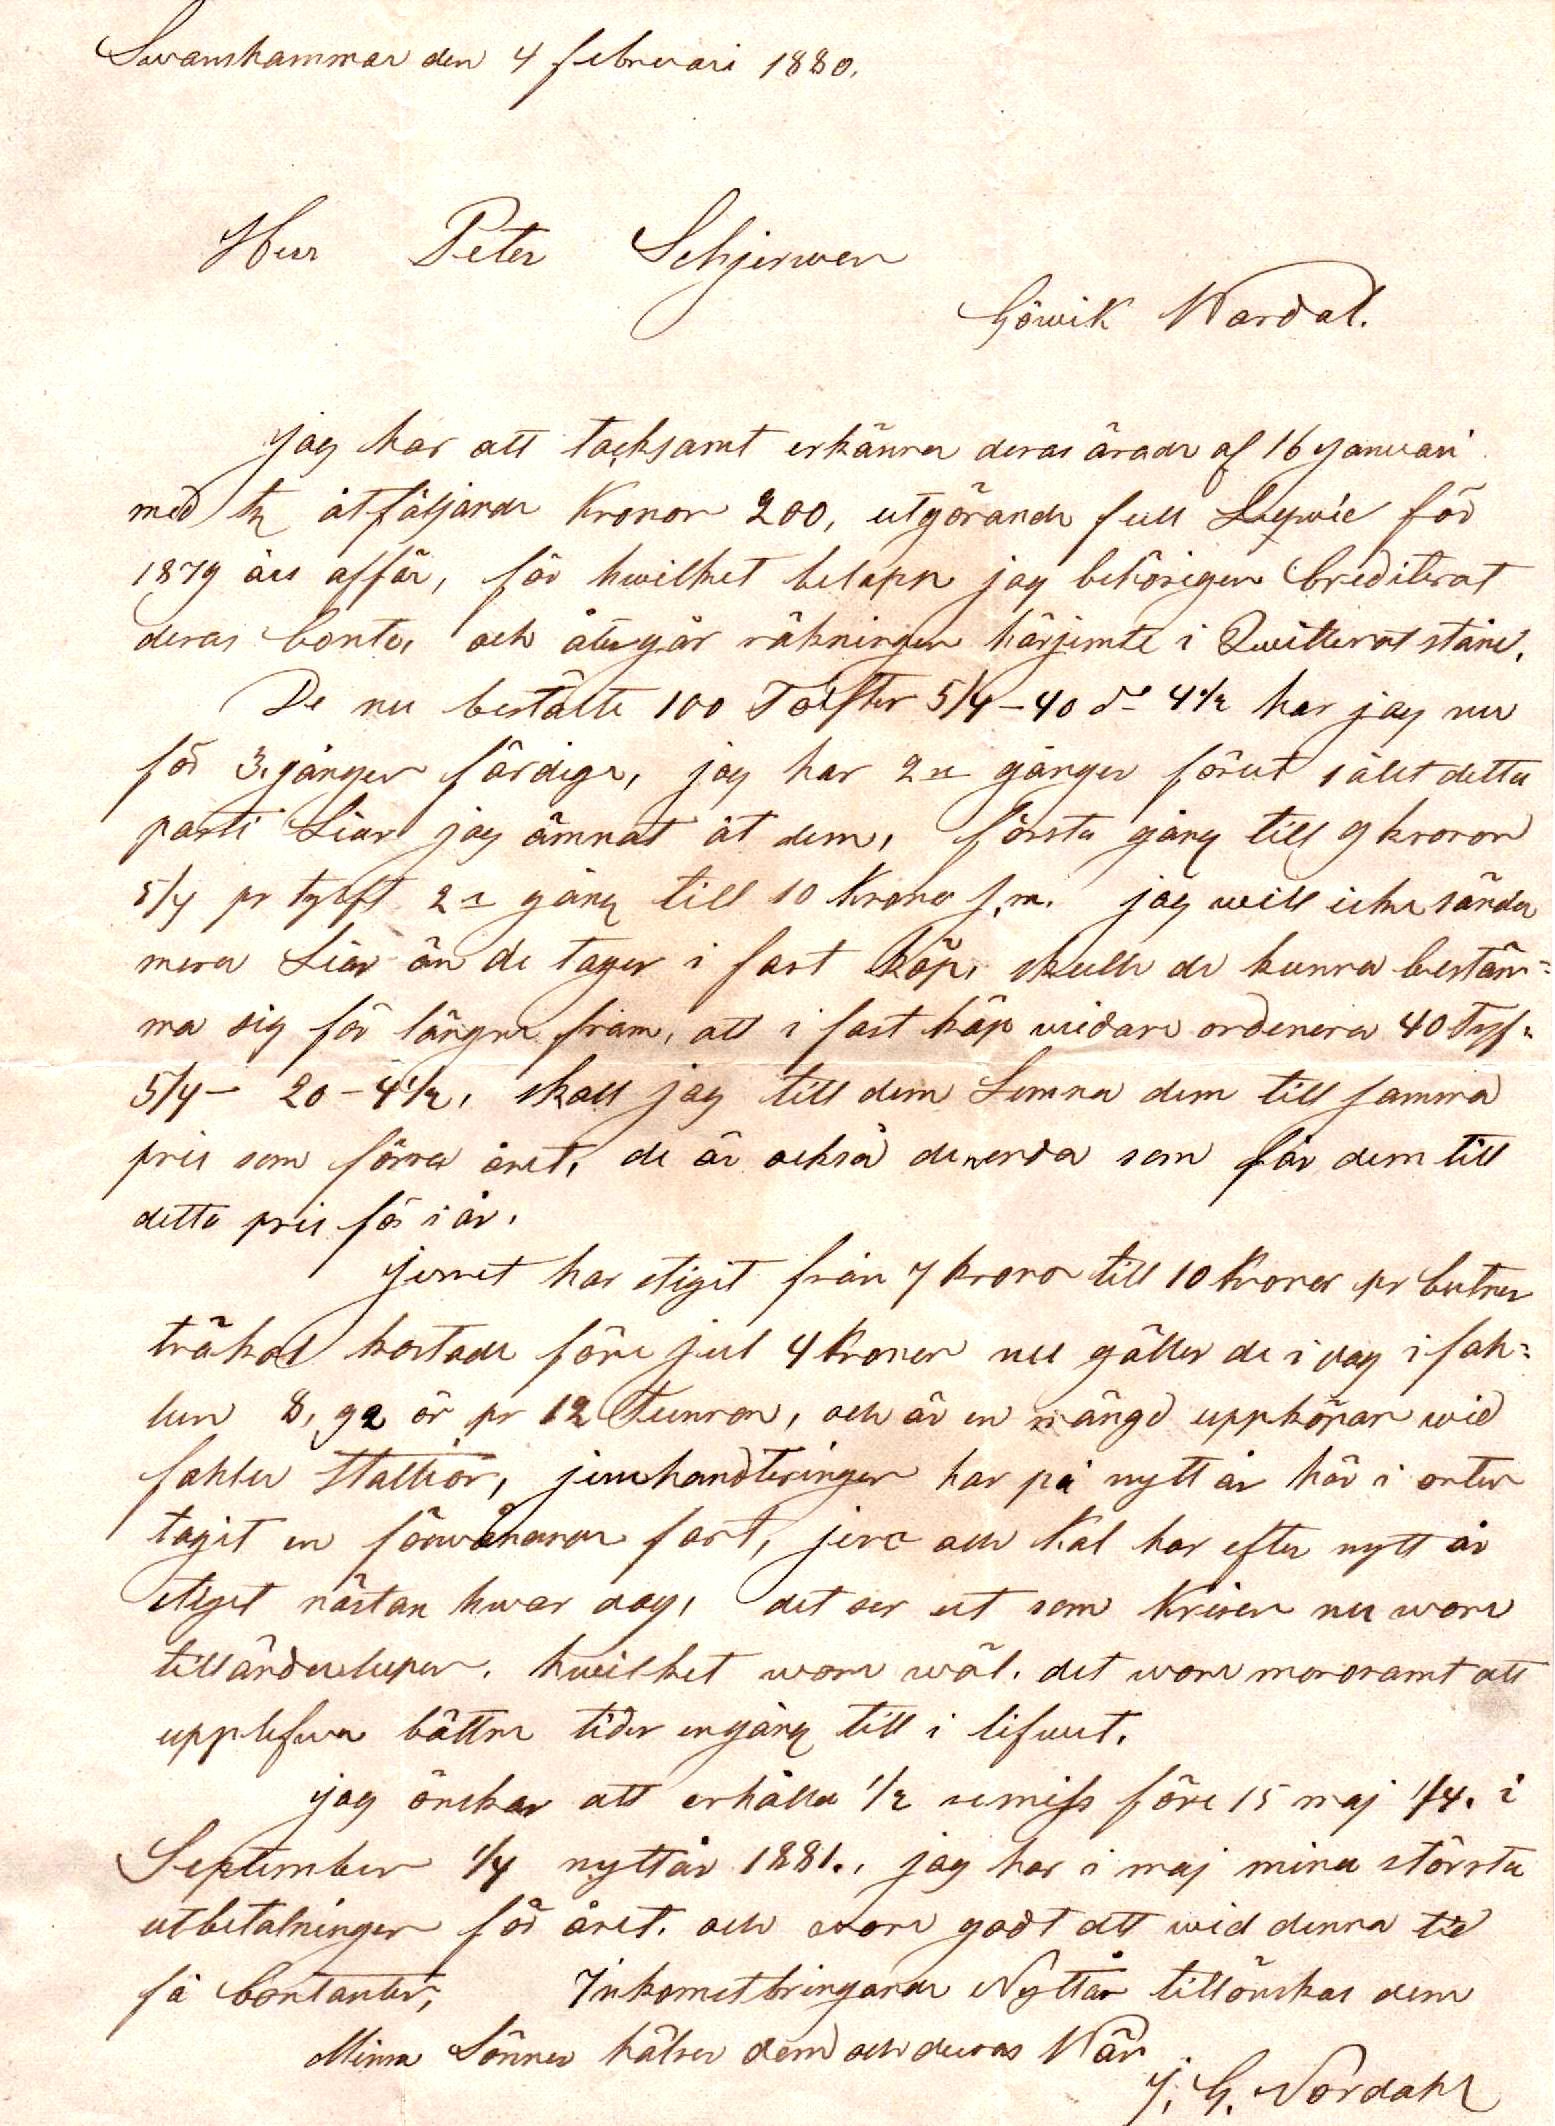 Swanshammar den 4 februari 1880.
Herr Peter Schjerwen
Göwik Wardal.
Jag har att tacksamt erkänna deras ärade af 16 Januari
med åtföljande Kronor 200, utgörande full Liqwid för
1879 års affär, för hwilket belopp jag behörigen Crediterat
deras Conto, och återgår räkningen härjemte i Qwitterat stånd.
De nu bestälte 100 Tolfter 5/4 – 40 do 4 1/2 har jag nu
för 3. gången färdiga, jag har 2a gånger förut sålt detta
parti Liar jag ämnat åt dem, första gång till 9 kronor
5/4 pr tylft 2a gång till 10 Kronor s.m. jag will icke sända
mera Liar än de tager i fast köp, skulle de kunna bestäm=
ma sig för längre fram, att i fast köp widare ordenera 40 Tylf=
5/4 – 20 – 4 1/2, skall jag till dem Lemna dem till samma
pris som förra året, de är också de enda som får dem till
detta pris för i år.
jernet har stigit från 7 kronor till 10 Kronor pr Centner
träkol kostade före jul 4 Kronor nu gäller de i dag i fah=
lun 8, 92 ör pr 12 Tunnor, och är en mängd uppköpare wid
fahlu Station, jernhandteringen har på nytt år här i orten
tagit en förwånande fart, jern och Kol har efter nytt år
stiget nästan hwar dag, det ser ut som Krisen nu wore
tilländalupen. hwilket wore wäl. det wore morosamt att
upplefwa bättre tider en gång till i lifwet.
jag önskar att erhålla 1/2 remiss före 15 maj 1/4. i
September 1/4 nyttår 1881., jag har i maj mina största
utbetalningar för året. och wore godt att wid denna tid
få Contanter, Inkomstbringande Nyttår tillönskas dem
Mina Sönner hälsar dem och deras Wän
J. G. Nordahl